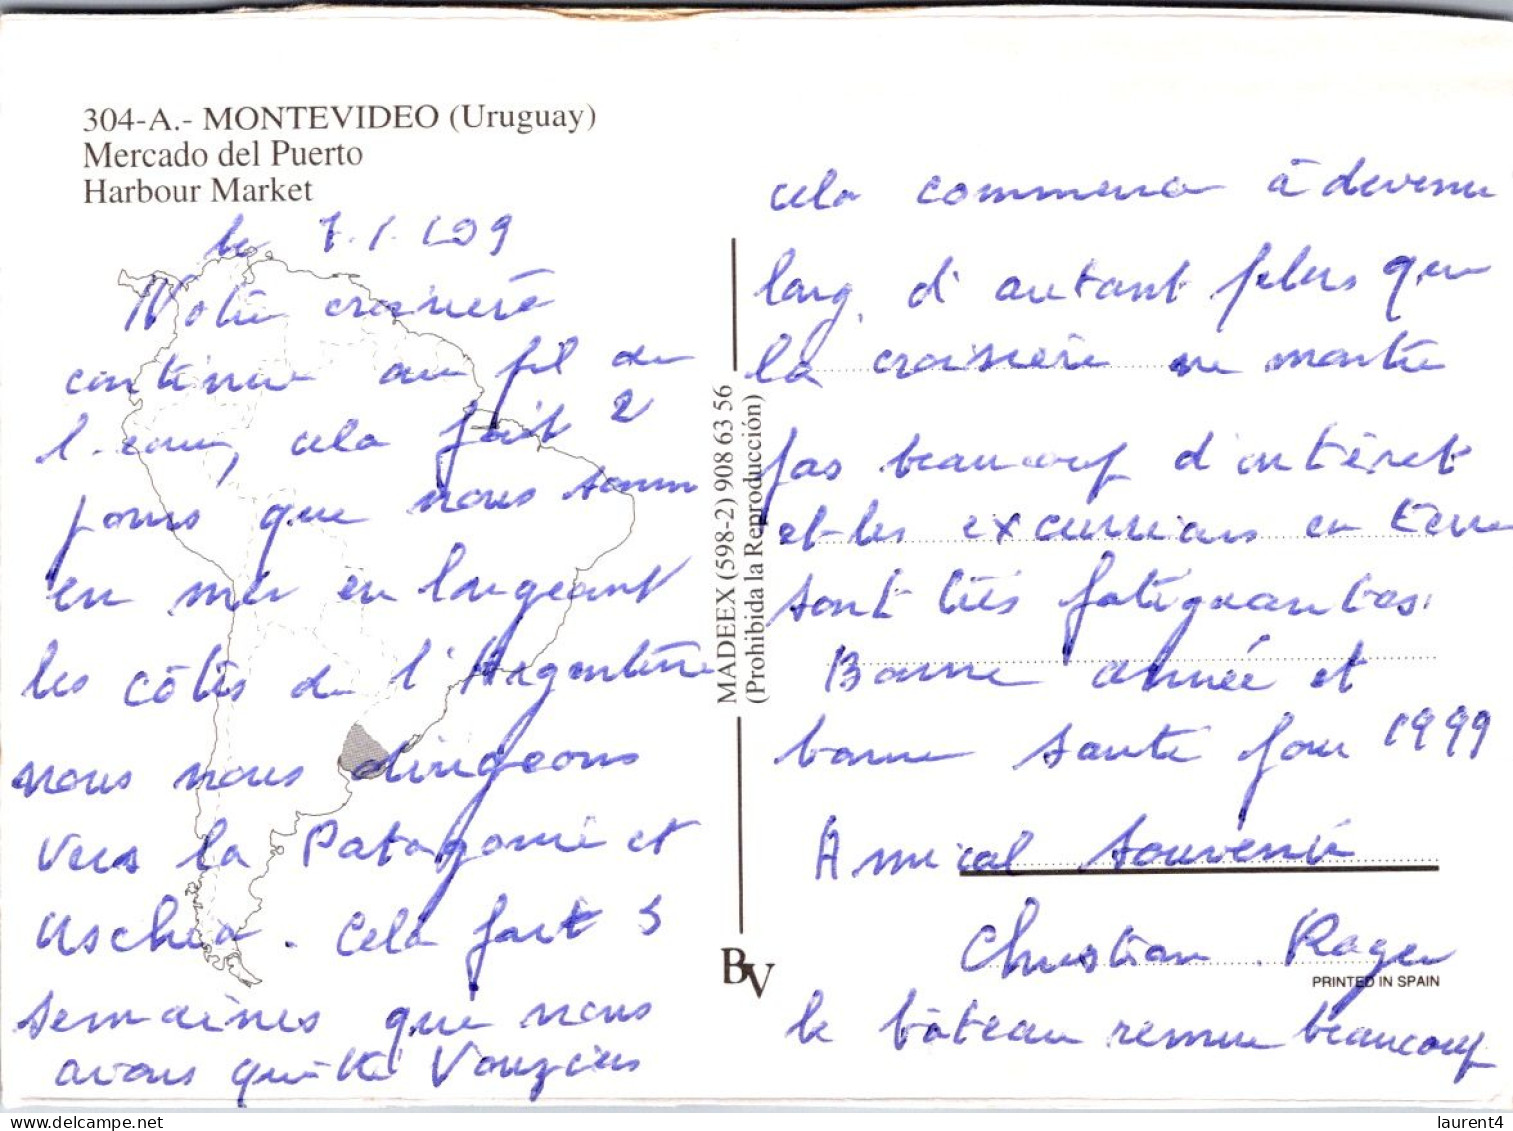 304-A.- MONTEVIDEO (Uruguay)
Mercado del Puerto
Harbour Market
le 7.1.199
Notre croisière
continue au fil de
l'eau, cela fait 2
jours que nous somm
en mer en longeant
les côtes de l'Argentine
nous nous dirigeons
vers la Patagonie et
Uschia. Cela fait 3
semaines que nous
avons quitté Vouziers
cela commence à devenir
long, d'autant plus que
la croisière ne montre
pas beaucoup d'intéret
et les excursions en terre
sont très fatiguantes.
Bonne année et
bonne santé pour 1999
Amical souvenir
Christian. Roger
le bâteau remue beaucoup
MADEEX (598-2) 908 63 56
(Prohibida la Reproducción)
BV
PRINTED IN SPAIN
laurent4